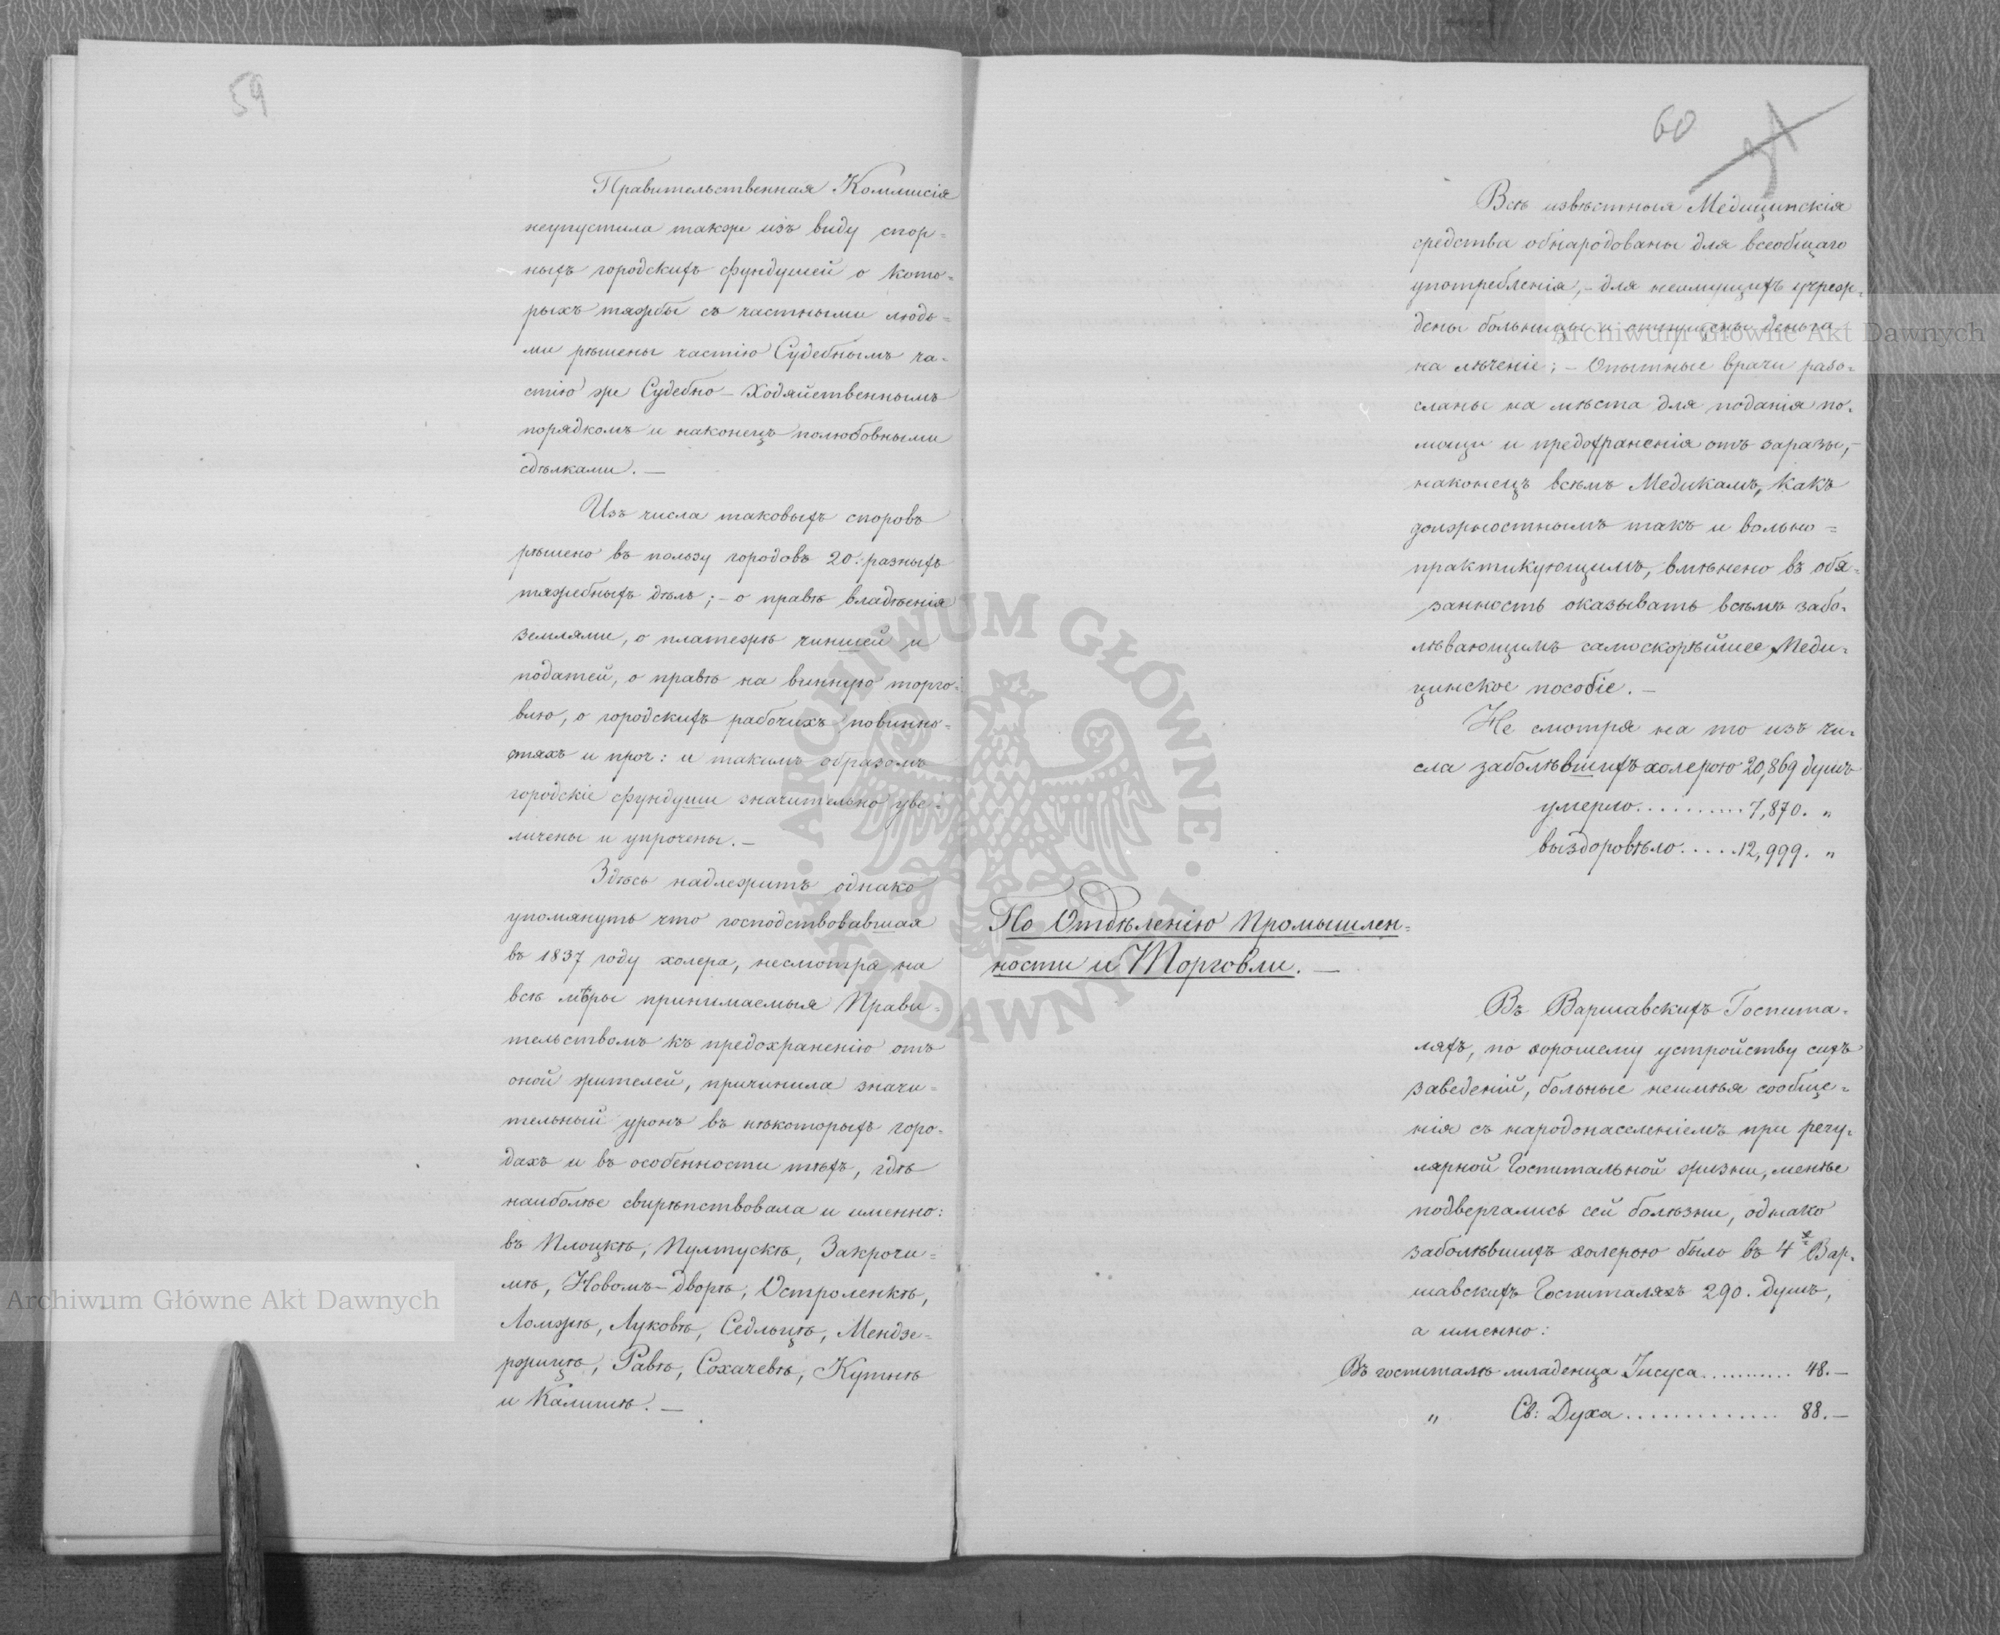 59
Правительственная Коммисія
неупустила также изъ виду спор=
ныхъ городскихъ фундушей о кото=
рыхъ тяжбы съ частными людь=
ми рѣшены частію Судебнымъ ча=
стію же Судебно-Хозяйственнымъ
порядкомъ и наконецъ полюбовными
сдѣлками. —
Изъ числа таковыхъ споровъ
рѣшено въ пользу городовъ 20: разныхъ
тяжебныхъ дѣлъ; - о правѣ владѣнія
землями, о платежѣ чиншей и
податей, о правѣ на винную торго=
влю, о городскихъ рабочихъ повинно=
стяхъ и проч: и такимъ образомъ
городскіе фундуши значительно уве=
личены и упрочены. —
Здѣсь надлежитъ однако
упомянуть что господствовавшая
въ 1837 году холера, несмотря на
всѣ мѣры принимаемыя Прави=
тельствомъ къ предохраненію отъ
оной жителей, причинила значи=
тельный уронъ въ нѣкоторыхъ горо=
дахъ и въ особенности тѣхъ, гдѣ
наиболѣе свирѣпствовала и именно:
въ Плоцкѣ, Пултускѣ, Закрочи=
мѣ, Новомъ-дворѣ, Остроленкѣ,
Ломжѣ, Луковѣ, Седльцѣ, Мендзе=
ржицѣ, Равѣ, Сохачевѣ, Кутнѣ
и Калишѣ. —
60
Всѣ извѣстныя Медицинскія
средства обнародованы для всеобщаго
употребленія, - для неимущихъ учреж=
дены больницы и отпущены деньги
на лѣченіе; - Опытные врачи разо=
сланы на мѣста для поданія по=
мощи и предохраненія отъ заразы, -
наконецъ всѣмъ Медикамъ, какъ
должностнымъ такъ и вольно=
практикующимъ, вмѣнено въ обя=
занность оказывать всѣмъ забо=
лѣвающимъ самоскорѣйшее Меди=
цинское пособіе. —
Не смотря на то изъ чи=
сла заболѣвшихъ холерою 20,869 душъ
умерло.......... 7,870. „
выздоровѣло..... 12,999. „
По Отдѣленію Промышлен=
ности и Торговли. —
Въ Варшавскихъ Госпита=
ляхъ, по хорошему устройству сихъ
заведеній, больные неимѣя сообще=
нія съ народонаселеніемъ при регу=
лярной Госпитальной жизни, менѣе
подвергались сей болѣзни, однако
заболѣвшихъ холерою было въ 4х Вар=
шавскихъ Госпиталяхъ 290. душъ,
а именно:
Въ госпиталѣ младенца Іисуса........... 48. —
„ Св: Духа.............. 88. —
Archiwum Główne Akt Dawnych
Archiwum Główne Akt Dawnych
ARCHIWUM GŁÓWNE · AKT DAWNYCH